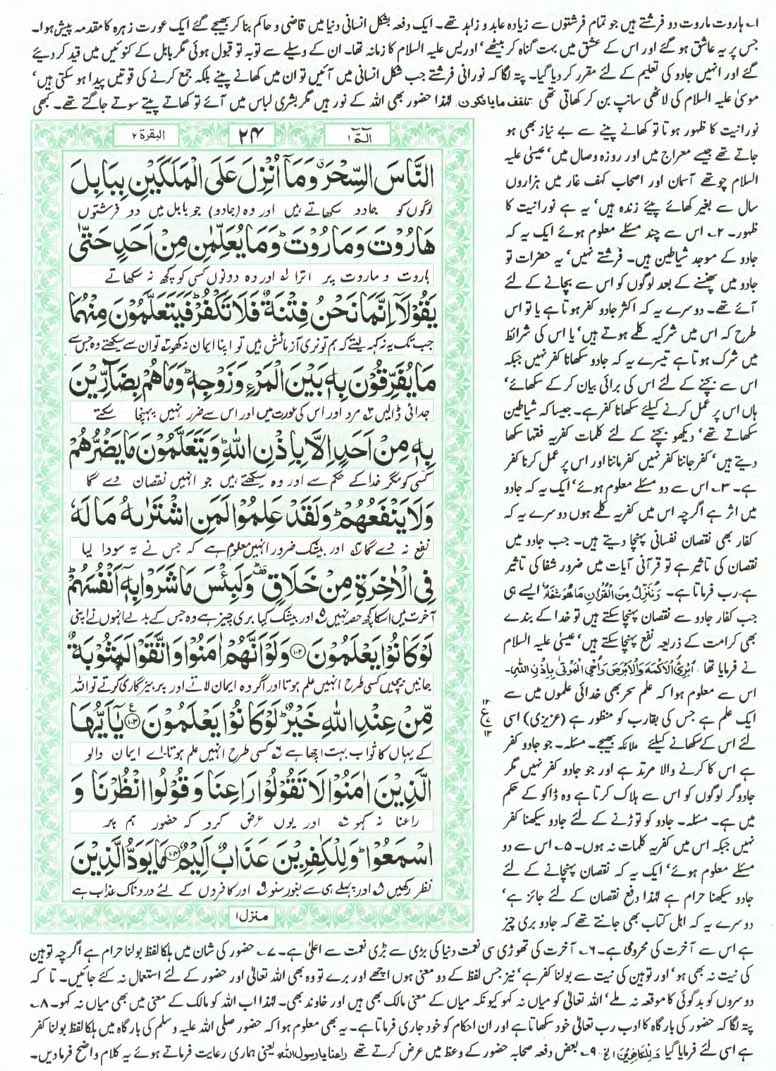 ۱۔ ہاروت ماروت دو فرشتے ہیں جو تمام فرشتوں سے زیادہ عابد و زاہد تھے۔ ایک دفعہ بشکل انسانی دنیا میں قاضی و حاکم بنا کر بھیجے گئے ایک عورت زہرہ کا مقدمہ پیش ہوا۔
جس پر یہ عاشق ہو گئے اور اس کے عشق میں بہت گناہ کر بیٹھے‘ ادریس علیہ السلام کا زمانہ تھا۔ ان کے وسیلے سے توبہ تو قبول ہوئی مگر بابل کے کنوئیں میں قید کر دیئے
گئے اور انہیں جادو کی تعلیم کے لئے مقرر کر دیا گیا۔ پتہ لگا کہ نورانی فرشتے جب شکل انسانی میں آئیں تو ان میں کھانے پینے بلکہ جمع کرنے کی قوتیں پیدا ہو سکتی ہیں‘
موسیٰ علیہ السلام کی لاٹھی سانپ بن کر کھاتی تھی تلقف مایافکون لہٰذا حضور بھی اللہ کے نور ہیں مگر بشری لباس میں آئے تو کھاتے پیتے سوتے جاگتے تھے۔ کبھی
نورانیت کا ظہور ہوتا تو کھانے پینے سے بے نیاز بھی ہو
جاتے تھے جیسے معراج میں اور روزہ وصال میں‘ عیسیٰ علیہ
السلام چوتھے آسمان اور اصحاب کہف غار میں ہزاروں
سال سے بغیر کھائے پیئے زندہ ہیں‘ یہ ہے نورانیت کا
ظہور۔ ۲۔ اس سے چند مسئلے معلوم ہوئے ایک یہ کہ
جادو کے موجد شیاطین ہیں۔ فرشتے نہیں‘ یہ حضرات تو
جادو میں پھنسنے کے بعد لوگوں کو اس سے بچانے کے لئے
آئے تھے۔ دوسرے یہ کہ اکثر جادو کفر ہوتا ہے یا تو اس
طرح کہ اس میں شرکیہ کلمے ہوتے ہیں‘ یا اس کی شرائط
میں شرک ہوتا ہے تیسرے یہ کہ جادو سکھانا کفر نہیں جبکہ
اس سے بچنے کے لئے اس کی برائی بیان کر کے سکھائے‘
ہاں اس پر عمل کرنے کیلئے سکھانا کفر ہے۔ جیسا کہ شیاطین
سکھاتے تھے‘ دیکھو بچنے کے لئے کلمات کفریہ فقہا سکھا
دیتے ہیں‘ کفر جاننا کفر نہیں کفر ماننا اور اس پر عمل کرنا کفر
ہے۔ ۳۔ اس سے دو مسئلے معلوم ہوئے‘ ایک یہ کہ جادو
میں اثر ہے اگرچہ اس میں کفریہ کلمے ہوں دوسرے یہ کہ
کفار بھی نقصان نفسانی پہنچا دیتے ہیں۔ جب جادو میں
نقصان کی تاثیر ہے تو قرآنی آیات میں ضرور شفا کی تاثیر
ہے‘ رب فرماتا ہے۔ وَنُنَزِّلُ مِنَ الْقُرْاٰنِ مَا ھُوَ شِفَآءٌ ایسے ہی
جب کفار جادو سے نقصان پہنچا سکتے ہیں تو خدا کے بندے
بھی کرامت کے ذریعہ نفع پہنچا سکتے ہیں‘ عیسیٰ علیہ السلام
نے فرمایا تھا اُبْرِئُ الْاَکْمَہَ وَالْاَبْرَصَ وَاُحْیِ الْمَوْتٰی بِاِذْنِ اللّٰہِ۔
اس سے معلوم ہوا کہ علم سحر بھی خدائی علموں میں سے
ایک علم ہے جس کی بقا رب کو منظور ہے (عزیزی) اسی
لئے اس کے سکھانے کیلئے ملائکہ بھیجے۔ مسئلہ۔ جو جادو کفر
ہے اس کا کرنے والا مرتد ہے اور جو جادو کفر نہیں مگر
جادوگر لوگوں کو اس سے ہلاک کرتا ہے وہ ڈاکو کے حکم
میں ہے۔ مسئلہ۔ جادو کو توڑنے کے لئے جادو سیکھنا کفر
نہیں جبکہ اس میں کفریہ کلمات نہ ہوں۔ ۵۔ اس سے دو
مسئلے معلوم ہوئے‘ ایک یہ کہ نقصان پہنچانے کے لئے
جادو سیکھنا حرام ہے لہٰذا دفع نقصان کے لئے جائز ہے‘
دوسرے یہ کہ اہل کتاب بھی جانتے تھے کہ جادو بری چیز
الٓمّٓ ۱
۲۴
البقرۃ ۲
النَّاسَ السِّحْرَ ۗ وَمَآ اُنْزِلَ عَلَى الْمَلَكَيْنِ بِبَابِلَ
لوگوں کو جادو سکھاتے ہیں اور وہ (جادو) جو بابل میں دو فرشتوں
هَارُوْتَ وَمَارُوْتَ ؕ وَمَا يُعَلِّمٰنِ مِنْ اَحَدٍ حَتّٰى
ہاروت و ماروت پر اترا اور وہ دونوں کسی کو کچھ نہ سکھاتے
يَقُوْلَآ اِنَّمَا نَحْنُ فِتْنَةٌ فَلَا تَكْفُرْ ؕ فَيَتَعَلَّمُوْنَ مِنْهُمَا
جب تک یہ نہ کہہ لیتے کہ ہم تو نری آزمائش ہیں تو اپنا ایمان نہ کھو تو ان سے سیکھتے وہ جس سے
مَا يُفَرِّقُوْنَ بِهٖ بَيْنَ الْمَرْءِ وَزَوْجِهٖ ؕ وَمَا هُمْ بِضَآرِّيْنَ
جدائی ڈالیں مرد اور اس کی عورت میں اور اس سے ضرر نہیں پہنچا سکتے
بِهٖ مِنْ اَحَدٍ اِلَّا بِاِذْنِ اللّٰهِ ؕ وَيَتَعَلَّمُوْنَ مَا يَضُرُّهُمْ
کسی کو مگر خدا کے حکم سے اور وہ سیکھتے ہیں جو انہیں نقصان دے گا
وَلَا يَنْفَعُهُمْ ؕ وَلَقَدْ عَلِمُوْا لَمَنِ اشْتَرٰىهُ مَا لَهٗ
نفع نہ دے گا اور بیشک ضرور انہیں معلوم ہے کہ جس نے یہ سودا لیا
فِى الْاٰخِرَةِ مِنْ خَلَاقٍ ؕ وَلَبِئْسَ مَا شَرَوْا بِهٖٓ اَنْفُسَهُمْ ؕ
آخرت میں اس کا کچھ حصہ نہیں اور بیشک کیا بری چیز ہے وہ جس کے بدلے انہوں نے اپنی
لَوْ كَانُوْا يَعْلَمُوْنَ ﴿۱۰۲﴾ وَلَوْ اَنَّهُمْ اٰمَنُوْا وَاتَّقَوْا لَمَثُوْبَةٌ
جانیں بیچیں کسی طرح انہیں علم ہوتا اور اگر وہ ایمان لاتے اور پرہیزگاری کرتے تو اللہ
مِّنْ عِنْدِ اللّٰهِ خَيْرٌ ؕ لَوْ كَانُوْا يَعْلَمُوْنَ ﴿۱۰۳﴾ ع يٰٓاَيُّهَا
کے یہاں کا ثواب بہت اچھا ہے کسی طرح انہیں علم ہوتا اے ایمان والو
۱۲
ع
۱۲
الَّذِيْنَ اٰمَنُوْا لَا تَقُوْلُوْا رَاعِنَا وَقُوْلُوا انْظُرْنَا وَ
راعنا نہ کہو اور یوں عرض کرو کہ حضور ہم پر
اسْمَعُوْا ؕ وَلِلْكٰفِرِيْنَ عَذَابٌ اَلِيْمٌ ﴿۱۰۴﴾ مَا يَوَدُّ الَّذِيْنَ
نظر رکھیں اور پہلے ہی سے بغور سنو اور کافروں کے لئے دردناک عذاب ہے
منزل ۱
ہے اس سے آخرت کی محرومی ہے۔ ۶۔ آخرت کی تھوڑی سی نعمت دنیا کی بڑی سے بڑی نعمت سے اعلیٰ ہے۔ ۷۔ حضور کی شان میں ہلکا لفظ بولنا حرام ہے اگرچہ توہین
کی نیت نہ بھی ہو‘ اور توہین کی نیت سے بولنا کفر ہے‘ نیز جس لفظ کے دو معنی ہوں اچھے اور برے تو وہ بھی اللہ تعالیٰ اور حضور کے لئے استعمال نہ کئے جائیں۔ تا کہ
دوسروں کو بدگوئی کا موقعہ نہ ملے‘ اللہ تعالیٰ کو میاں نہ کہو کیونکہ میاں کے معنی مالک بھی ہیں اور خاوند بھی۔ لہٰذا اب اللہ کو مالک کے معنی میں بھی میاں نہ کہو۔ ۸۔
پتہ لگا کہ حضور کی بارگاہ کا ادب رب تعالیٰ خود سکھاتا ہے اور ان احکام کو خود جاری فرماتا ہے۔ یہ بھی معلوم ہوا کہ حضور صلی اللہ علیہ وسلم کی بارگاہ میں ہلکا لفظ بولنا کفر
ہے اسی لئے فرمایا گیا وَلِلْکَافِرِیْنَ الخ ۹۔ بعض دفعہ صحابہ حضور کے وعظ میں عرض کرتے تھے راعنا یا رسول اللہ یعنی ہماری رعایت فرماتے ہوئے یہ کلام واضح فرما دیں۔